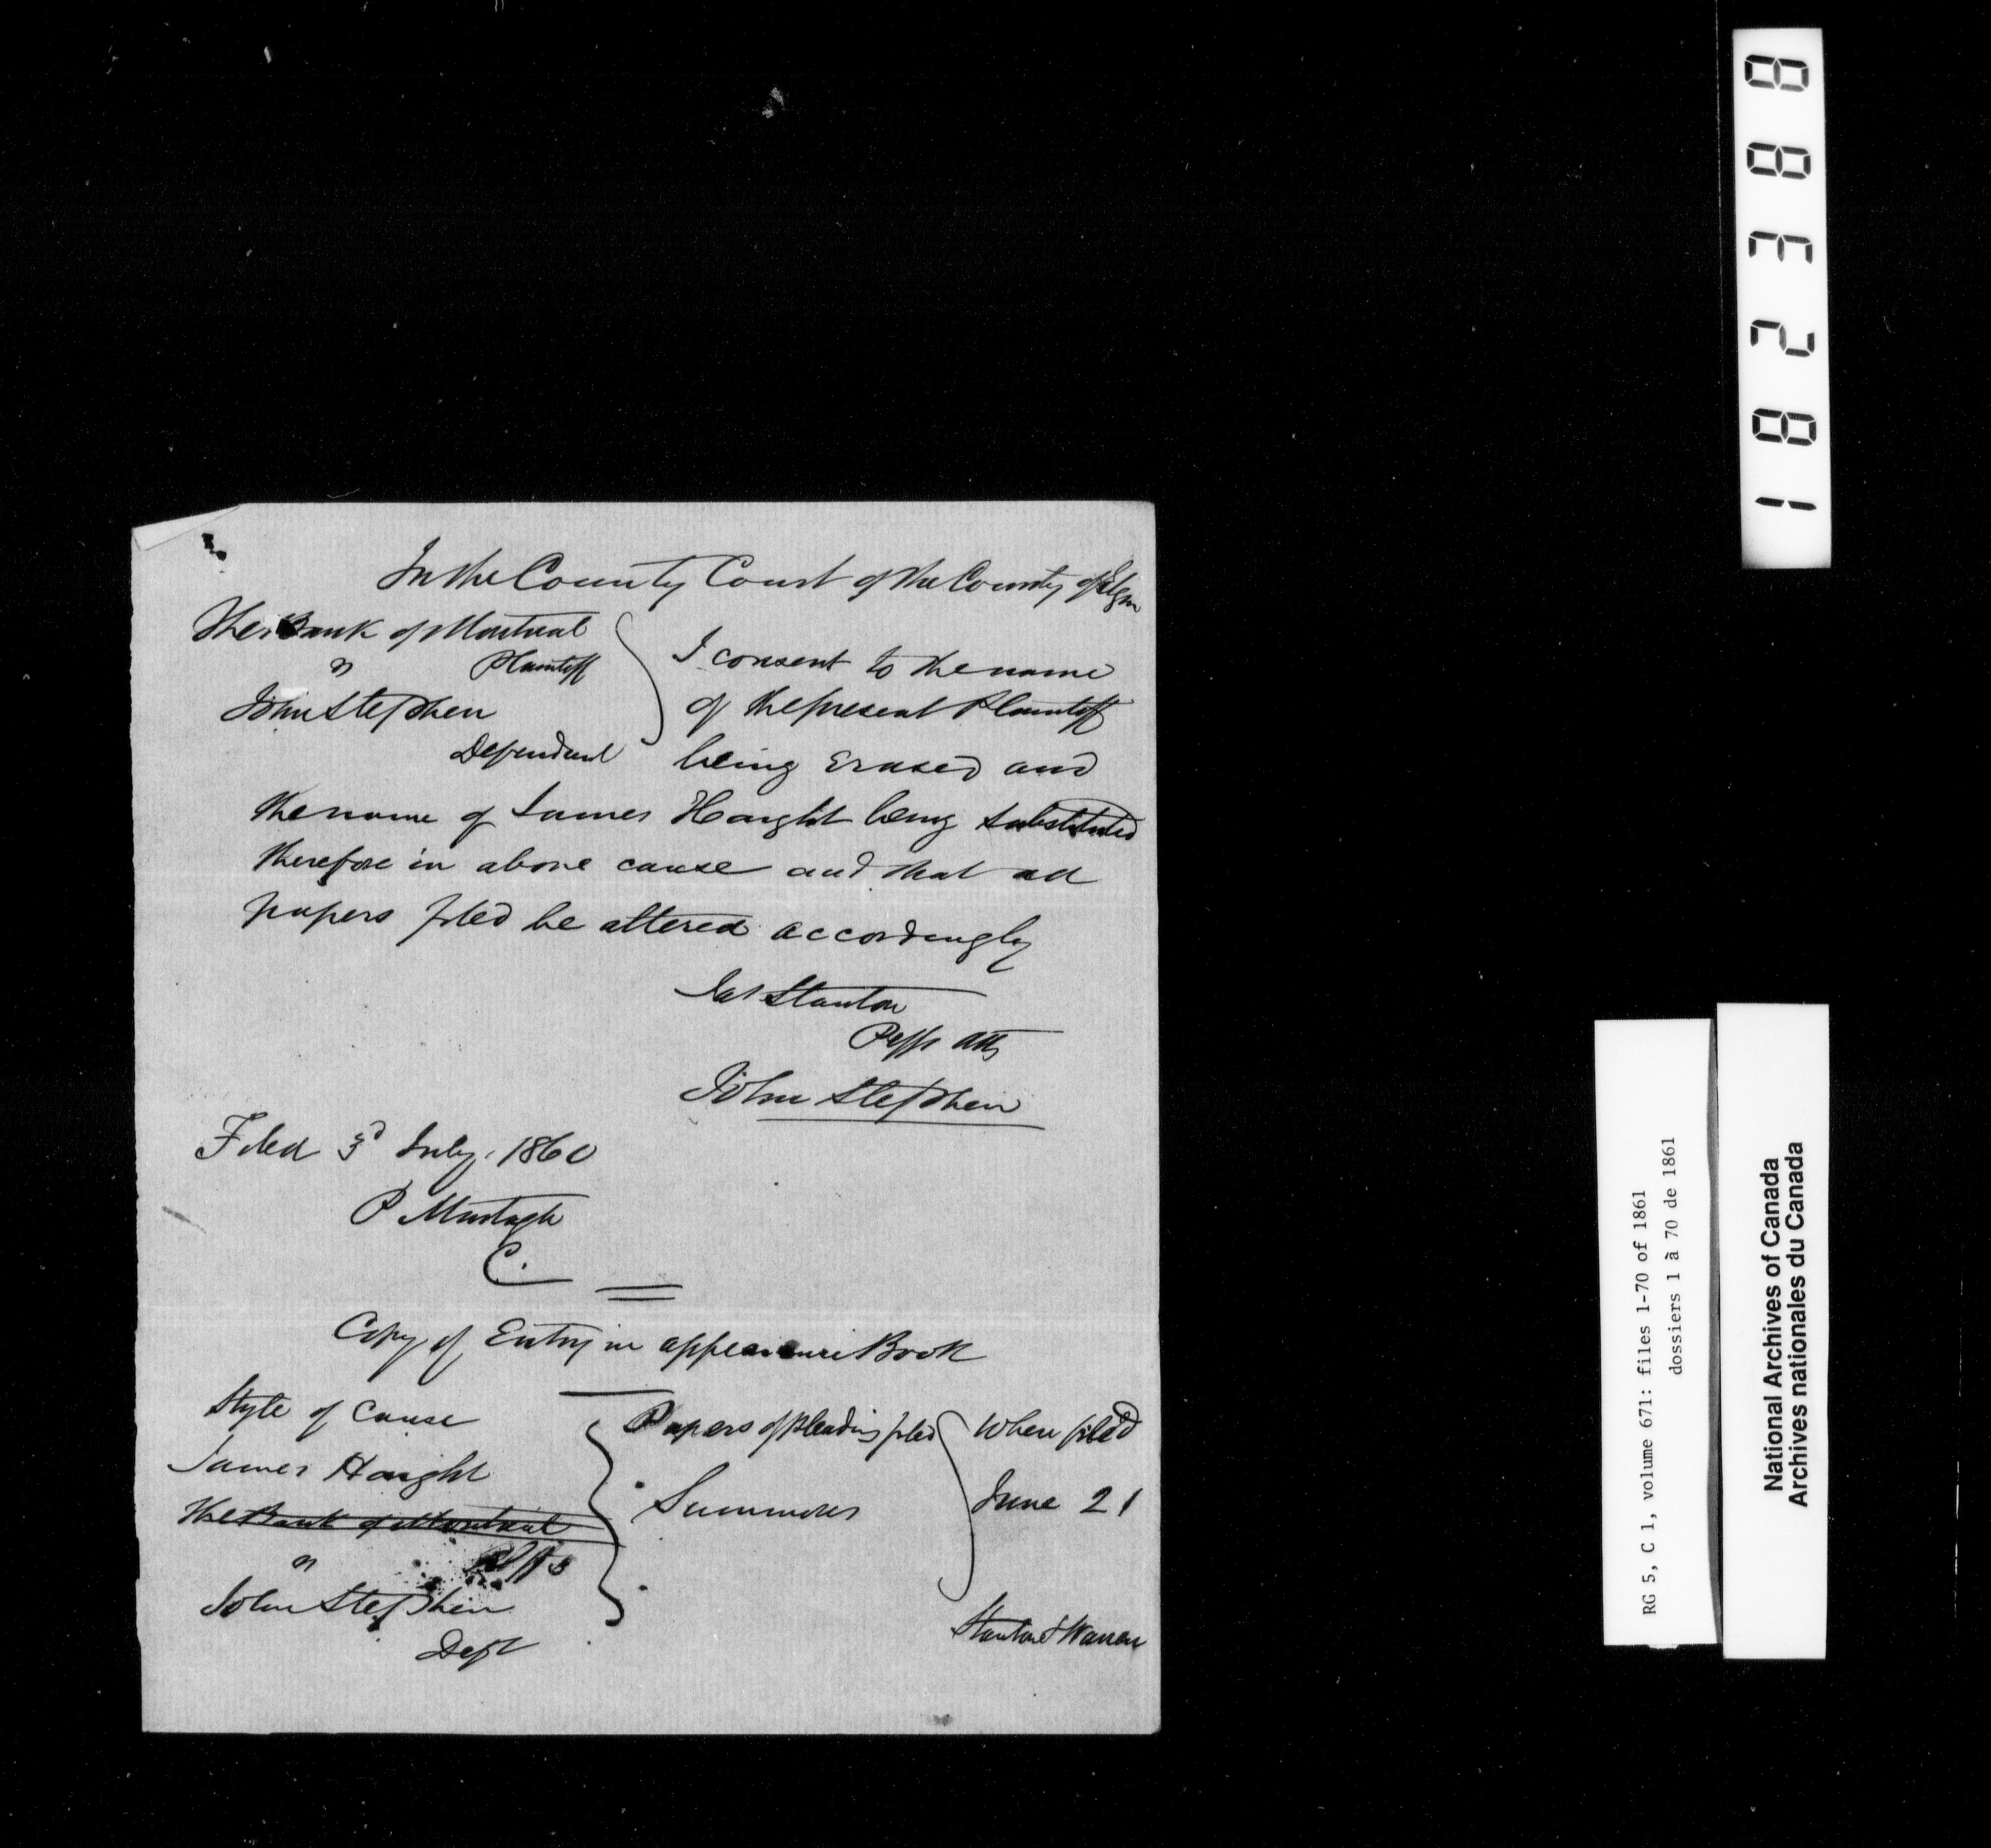 In the County Court of the County of Elgin
The Bank of Montreal
Plaintiff
John Stephen
Defendant
I consent to the name
of the present Plaintiff
being Erased and
the name of James Haight being substituted
therefore in above cause and that all
papers filed be altered accordingly
Jas Stanton
Plffs Atty
John Stephen
Filed 3d July, 1860
P Murtagh
C.
Copy of Entry in appearance Book
Style of Cause
James Haight
The Bank of Montreal
Plffs
John Stephen
Deft
Papers of pleading filed
Summons
When filed
June 21
Stanton & Warren
18238 8
RG 5, C 1, volume 671: files 1-70 of 1861
dossiers 1 à 70 de 1861
National Archives of Canada
Archives nationales du Canada